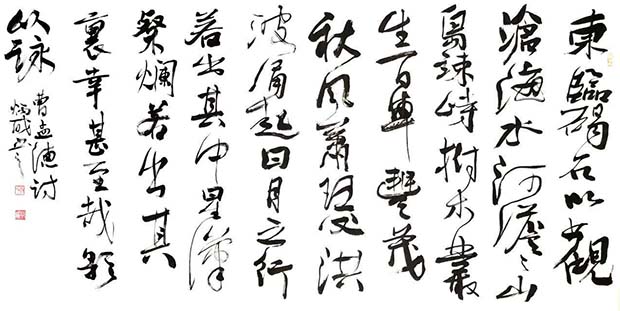 東臨碣石以觀
滄海水河澹々山
島竦峙樹木叢
生百草豐茂
秋風蕭瑟洪
波涌起日月之行
若出其中星漢
粲爛若出其
裏幸甚至哉歌
以詠
曹孟德诗